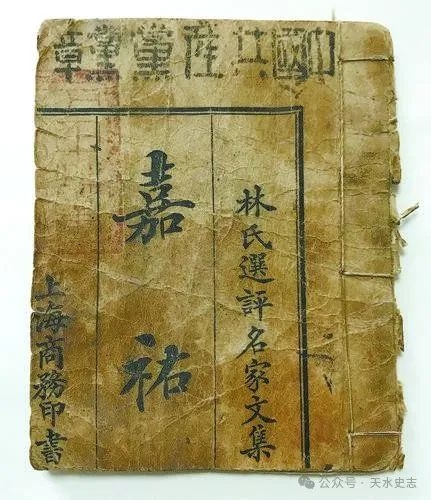 中國共產黨黨章
林氏選評名家文集
嘉祐
上海商務印書
公众号 · 天水史志